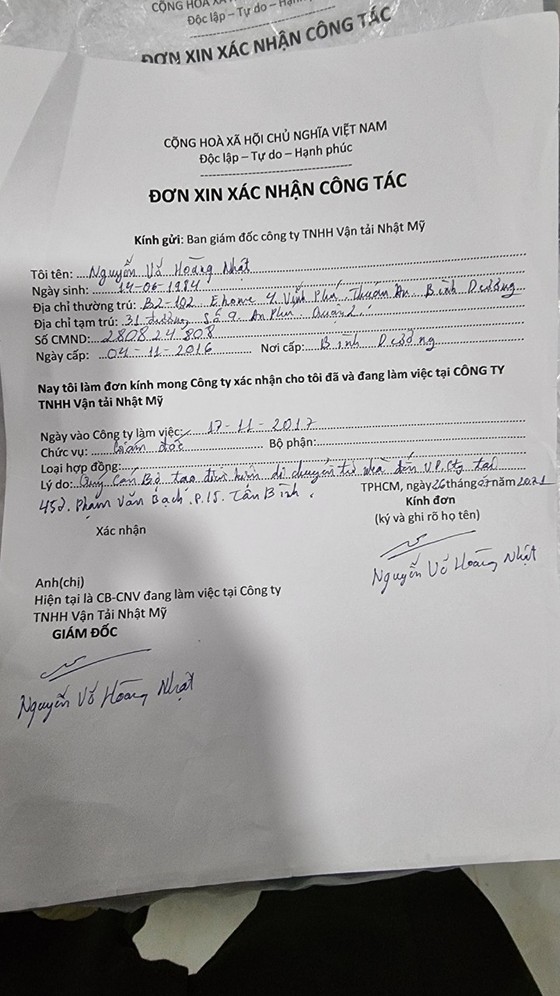 CỘNG HOÀ XÃ
Độc lập – Tự do – Hạn
ĐƠN XIN XÁC NHẬN CÔNG TÁC
CỘNG HOÀ XÃ HỘI CHỦ NGHĨA VIỆT NAM
Độc lập – Tự do – Hạnh phúc
ĐƠN XIN XÁC NHẬN CÔNG TÁC
Kính gửi: Ban giám đốc công ty TNHH Vận tải Nhật Mỹ
Tôi tên: Nguyễn Võ Hoàng Nhật
Ngày sinh: 14-06-1984
Địa chỉ thường trú: B2-102 Ehome 4 Vĩnh Phú, Thuận An, Bình Dương
Địa chỉ tạm trú: 31 đường Số 9 An Phú, Quận 2
Số CMND: 280824808
Ngày cấp: 04-11-2016 Nơi cấp: Bình Dương
Nay tôi làm đơn kính mong Công ty xác nhận cho tôi đã và đang làm việc tại CÔNG TY
TNHH Vận tải Nhật Mỹ
Ngày vào Công ty làm việc: 17-11-2017
Chức vụ: Giám đốc Bộ phận:
Loại hợp đồng:
Lý do: Quý Cán Bộ tạo điều kiện di chuyển từ nhà đến V.P. Cty tại
452. Phạm Văn Bạch. P.15. Tân Bình.
TPHCM, ngày 26 tháng 07 năm 2021
Kính đơn
Xác nhận
(ký và ghi rõ họ tên)
Nguyễn Võ Hoàng Nhật
Anh(chị)
Hiện tại là CB-CNV đang làm việc tại Công ty
TNHH Vận Tải Nhật Mỹ
GIÁM ĐỐC
Nguyễn Võ Hoàng Nhật